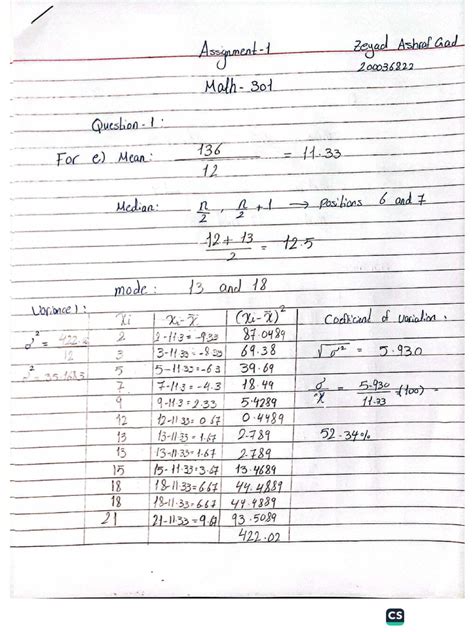 Assignment-1
Zeyad Ashraf Gad
200036822
Math-301
Question-1:
For e) Mean: 136/12 = 11.33
Median: n/2, n/2+1 → Positions 6 and 7
12+13/2 = 12.5
mode: 13 and 18
Variance:
σ² = 422/12
σ² = 35.1683
xi | xi-x̄ | (xi-x̄)²
2 | 2-11.3=-9.33 | 87.0489
3 | 3-11.33=-8.33 | 69.38
5 | 5-11.33=-6.3 | 39.69
7 | 7-11.3=-4.3 | 18.49
9 | 9-11.3=2.33 | 5.4289
12 | 12-11.33=0.67 | 0.4489
13 | 13-11.33=1.67 | 2.789
13 | 13-11.33=1.67 | 2.789
15 | 15-11.33=3.67 | 13.4689
18 | 18-11.33=6.67 | 44.4889
18 | 18-11.33=6.67 | 44.4889
21 | 21-11.33=9.67 | 93.5089
422.02
Coefficient of variation:
√σ² = 5.930
σ/x̄ = 5.930/11.33 *(100) =
52.34%
CS